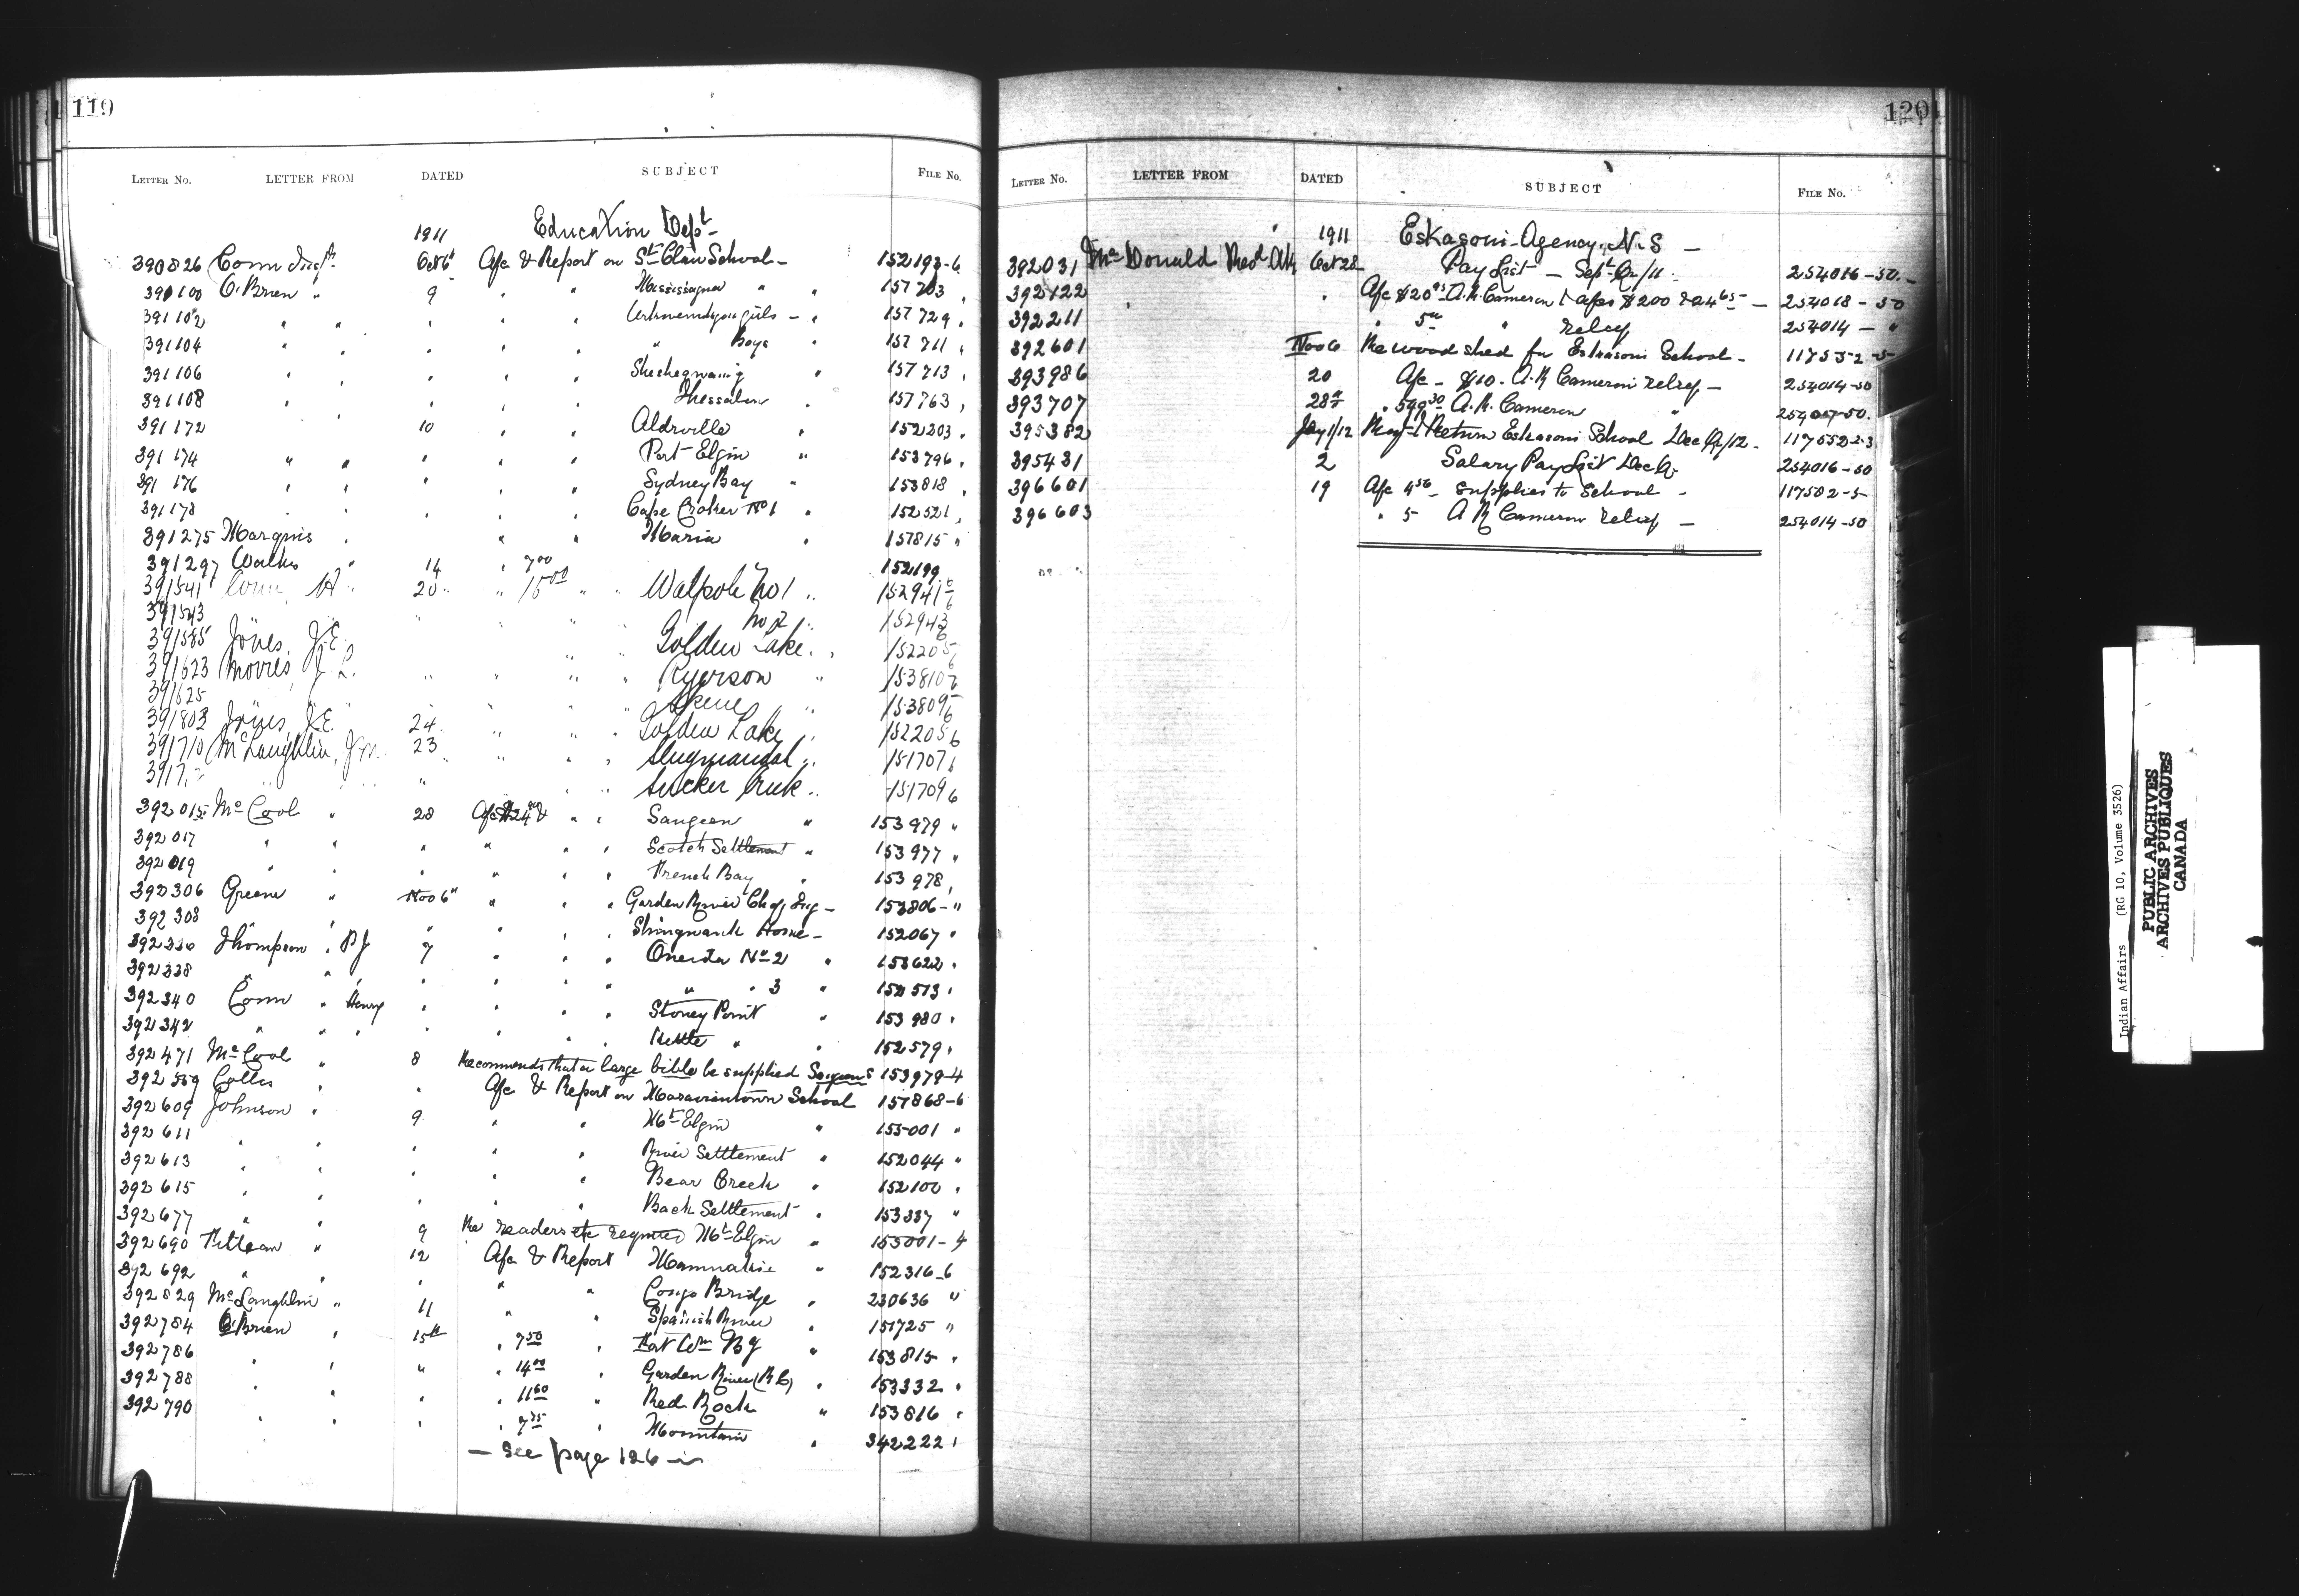 119
LETTER No. LETTER FROM DATED SUBJECT FILE No.
1911 Education Dept
390826 Conn Oct 6 Afc & Report on St Clair School - 152193-6
391100 O'Brien " 9 " " Mississagua " " 157703 "
391102 " " " " " girls - " 157729 "
391104 " " " " " " Boys " 157711 "
391106 " " " " " Sheshegwaning " 157713 "
391108 " " " " " Thessalon " 157763 "
391172 10 " Alderville " 152203 "
391174 " " " " " Port Elgin " 153796 "
391176 " " " " Sydney Bay " 153818 "
391178 " " " Cape Croker No 1 " 152521 "
391275 Marquis " " " Maria " 157815 "
391297 Walks " 14 " 7 00 152199
391541 Conn, H " 20 " " 15 00 " " Walpole No 1 " 152941 6
391543 " " " No 2 " 152943 6
391585 Jones, J.E. " " Golden Lake " 152205 6
391623 Morris, J. L. " " " " Ryerson " 153810 6
391625 " " " Skene " 153809 6
391803 Jones, J.E. 24 " " " Golden Lake " 152205 6
391710 McLaughlin, J.M. 23 " " " " 151707 6
3917 " " " " Sucker Creek " 151709 6
392015 McCool " 28 Afc $24 00 & " " Saugeen " 153979 "
392017 " " " " " " Scotch Settlement " 153977 "
392019 " " " " " French Bay " 153978 "
392306 Greene " Nov 6 " " " " Garden River - 153806 - "
392308 " " " " " Shingwauk Home - 152067 "
392336 Thompson " P J 7 " " " Oneida No 2 " 153622 "
392338 " " " " " " " 3 " 152513 "
392340 Conn " Henry " " " Stoney Point " 153980 "
392342 " " " " " " Kettle " " 152579 "
392471 McCool " 8 Recommends that a large bible be supplied Saugeen S 153979-4
392559 " " Afc & Report on Moraviantown School 151868-6
392609 Johnson " 9 " " Mt Elgin " 155001 "
392611 " " " " River Settlement " 152044 "
392613 " " " " Bear Creek " 152100 "
392615 " " " " Back Settlement " 153337 "
392677 " " 9 Re readers etc required Mt Elgin " 155001-4
392690 " 12 Afc & Report " 152316-6
392692 " " " " " " 230636 "
392829 McLaughlin " 11 " " Spanish River " 151725 "
392784 O'Brien " 15th " 7 50 " Fort Wm " 153815 "
392786 " " " " 14 00 " Garden River (R C) " 153332 "
392788 " " " " 11 60 " Red Rock " 153816 "
392790 " " " " 7 75 " Mountain " 342222 "
- See page 126 -
120
LETTER No. LETTER FROM DATED SUBJECT FILE No.
1911 Eskasoni Agency, N.S -
392031 McDonald Revd Oct 28 Pay List - Sept Qr/11 - 254016-50 -
392122 " " Afc $20 A.R. Cameron - 254018-50
392211 " 5 " relief 254014 - "
392601 Nov 6 Re wood shed for Eskasoni School - 117552-5
393986 20 Afc - $10 - A.R Cameron relief - 254014-50
393707 28th " A.R. Cameron " 254017-50.
395382 Jany 1/12 Return Eskasoni School Dec Qr/12 - 117552-2-3
395431 2 Salary Pay List Dec Qr 254016-50
396601 19 Afc 4 50 - Supplies to School - 117502-5
396603 " 5 - A R Cameron relief - 254014-50
Indian Affairs (RG 10, Volume 3526)
PUBLIC ARCHIVES
ARCHIVES PUBLIQUES
CANADA